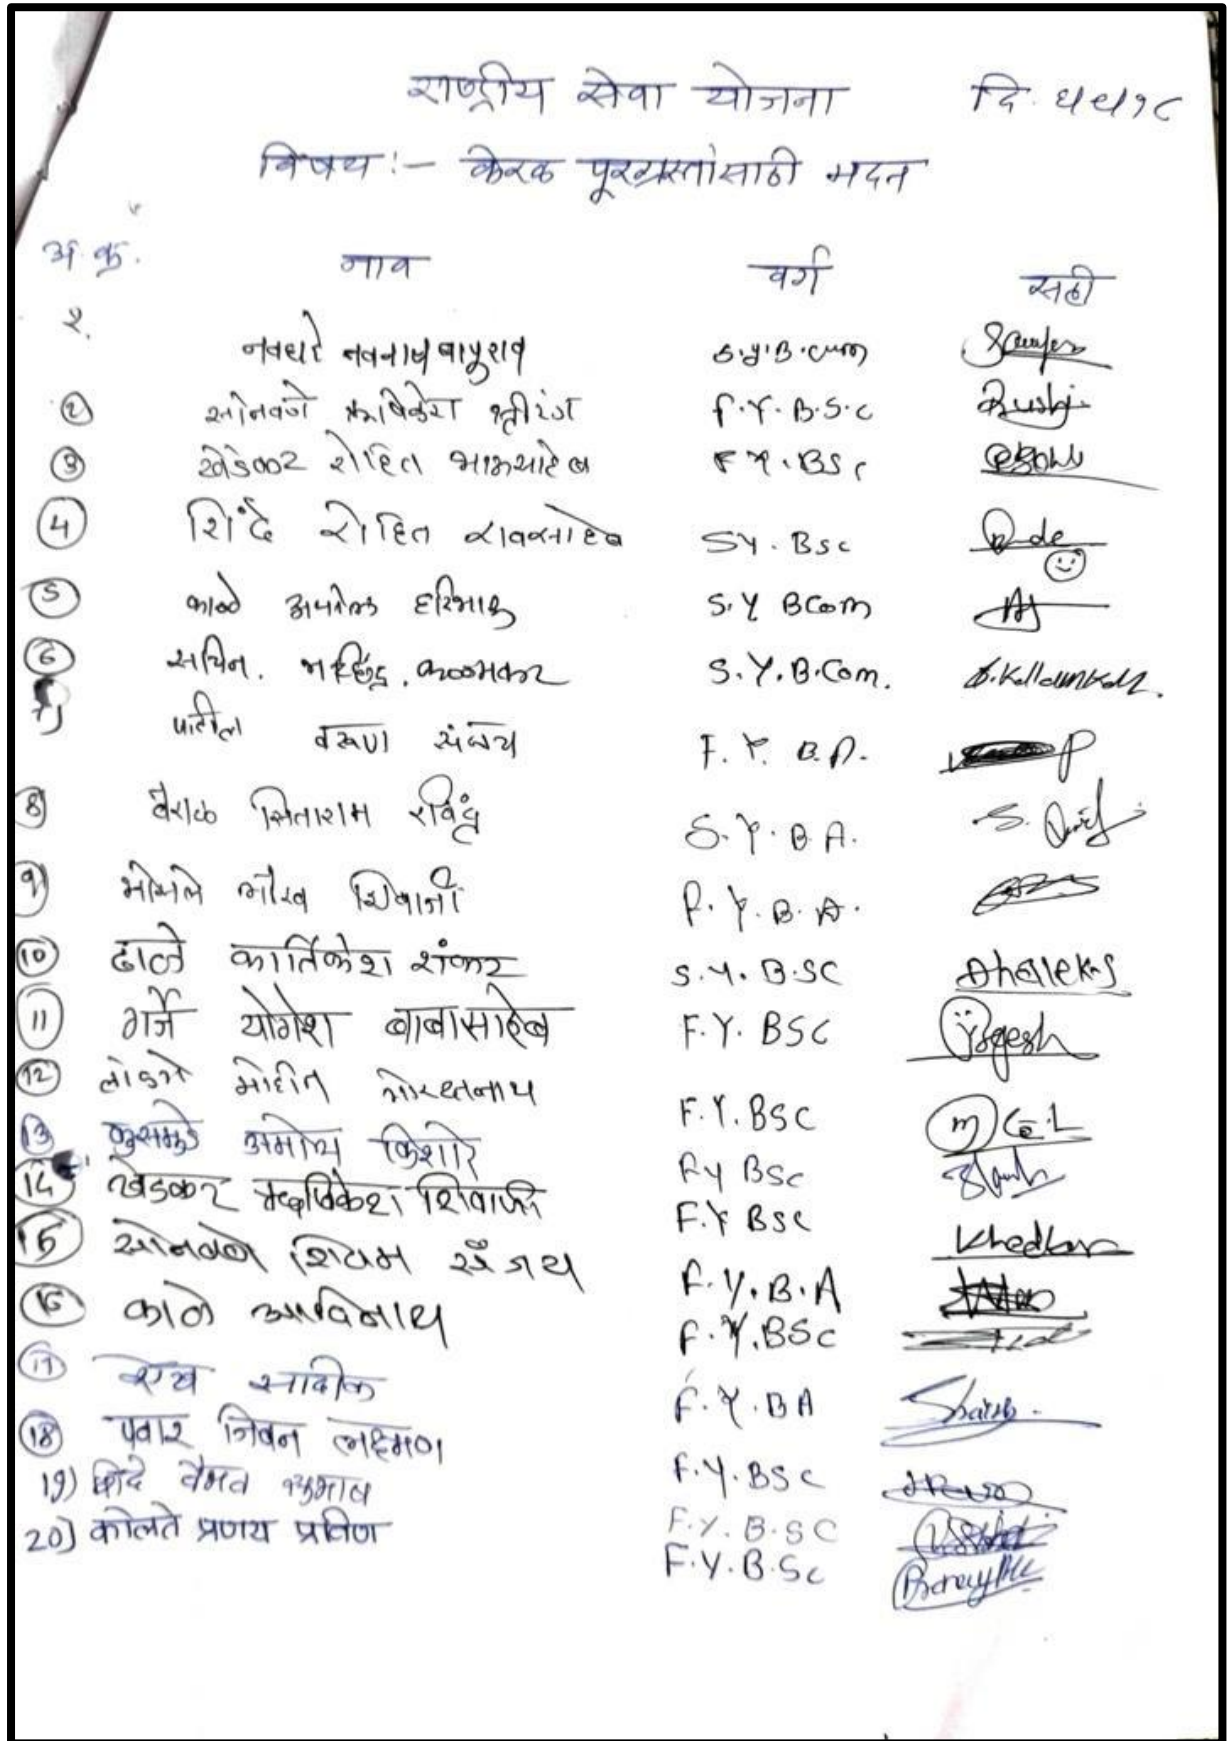 राष्ट्रीय सेवा योजना दि. ५/९/१८
विषय :- केरळ पूरग्रस्तांसाठी मदत
अ. क्र. नाव वर्ग सही
१. नवथरे नवनाथ बापुराव S.Y.B.com
② सोनवणे ऋषिकेश श्रीरंग F.Y.B.S.c Rushi
③ खेडकर रोहित भाऊसाहेब F.Y.BSc
④ शिंदे रोहित रावसाहेब SY.Bsc
⑤ काळे हरिभाऊ S.Y BCom
⑥ सचिन. मच्छिंद्र. कळमकर S.Y.B.Com. S.Kallamkar.
7) पाटील वरुण संजय F.Y.B.A.
8) बेराळ सिताराम रविंद्र S.Y.B.A.
9) भोसले गौरव शिवाजी F.Y.B.A.
⑩ ढाले कार्तिकेश शंकर S.Y.B.SC Dhaleks
⑪ गर्जे योगेश बाबासाहेब F.Y.BSC Yogesh
⑫ लांडगे मोहीत गोरक्षनाथ F.Y.BSC
⑬ कुसमुडे अमोघ किशोर F.Y BSc
⑭ खेडकर ऋषिकेश शिवाजी F.Y BSc Khedkar
⑮ सोनवणे शिवम संजय F.Y.B.A
⑯ काळे अविनाश F.Y.BSc
⑰ शेख सादीक F.Y.BA Shaikh
⑱ पवार जिवन लक्ष्मण F.Y.BSc
19) शिंदे वैभव F.Y.B.SC
20) कोलते प्रणय प्रविण F.Y.B.Sc